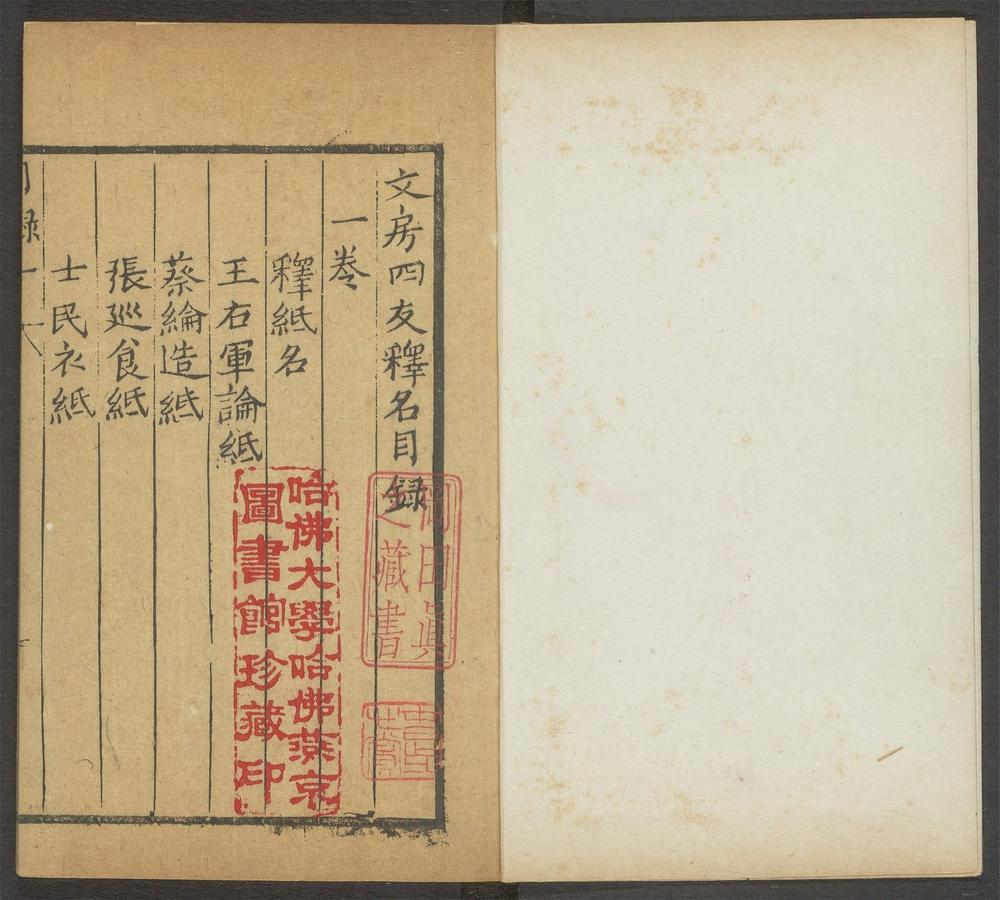 文房四友釋名目錄
一卷
釋紙名
王右軍論紙
蔡綸造紙
張巡食紙
士民衣紙
錄一
哈佛大學哈佛燕京
圖書館珍藏印
田眞
之藏書